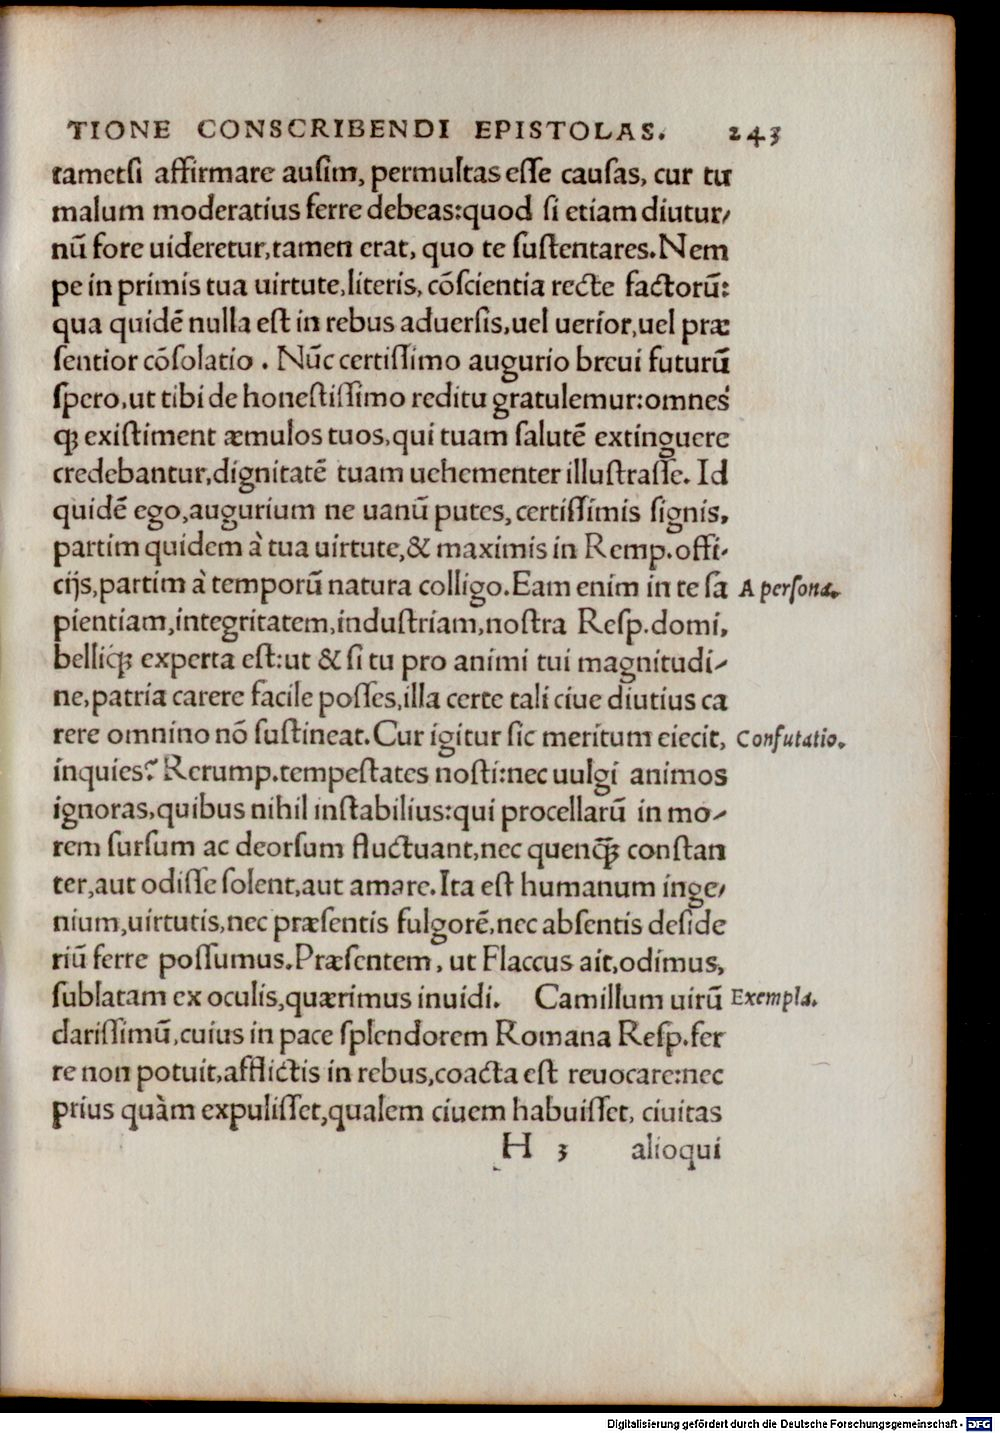 TIONE CONSCRIBENDI EPISTOLAS. 243
tametsi affirmare ausim, permultas esse causas, cur tu
malum moderatius ferre debeas:quod si etiam diutur/
nũ fore uideretur,tamen erat, quo te sustentares.Nem
pe in primis tua uirtute,literis, cõscientia recte factorũ:
qua quidẽ nulla est in rebus aduersis,uel uerior,uel præ
sentior cõsolatio . Nũc certissimo augurio breui futurũ
spero,ut tibi de honestissimo reditu gratulemur:omnes
q̃ existiment æmulos tuos,qui tuam salutẽ extinguere
credebantur,dignitatẽ tuam uehementer illustrasse. Id
quidẽ ego,augurium ne uanũ putes, certissimis signis,
partim quidem à tua uirtute,& maximis in Remp.offi-
cijs,partim à temporũ natura colligo.Eam enim in te sa
A persona.
pientiam,integritatem,industriam,nostra Resp.domi,
belliq̃ experta est:ut & si tu pro animi tui magnitudi-
ne,patria carere facile posses,illa certe tali ciue diutius ca
rere omnino nõ sustineat.Cur igitur sic meritum eiecit,
Confutatio.
inquies? Rerump.tempestates nosti:nec uulgi animos
ignoras,quibus nihil instabilius:qui procellarũ in mo-
rem sursum ac deorsum fluctuant,nec quenq̃ constan
ter,aut odisse solent,aut amare.Ita est humanum inge/
nium,uirtutis,nec præsentis fulgorẽ,nec absentis deside
riũ ferre possumus.Præsentem, ut Flaccus ait,odimus,
sublatam ex oculis,quærimus inuidi. Camillum uirũ
Exempla.
clarissimũ,cuius in pace splendorem Romana Resp.fer
re non potuit,afflictis in rebus,coacta est reuocare:nec
prius quàm expulisset,qualem ciuem habuisset, ciuitas
H 3 alioqui
Digitalisierung gefördert durch die Deutsche Forschungsgemeinschaft - DFG